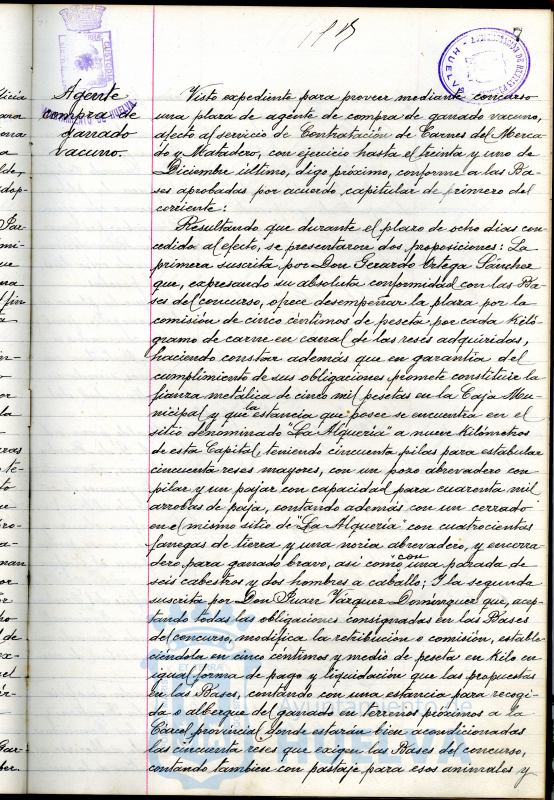 7
Agente
compra de
ganado
vacuno.
Visto expediente para proveer mediante concurso
una plaza de agente de compra de ganado vacuno,
afecto al servicio de Contratación de Carnes del Merca-
do y Matadero, con ejercicio hasta el treinta y uno de
Diciembre último, digo próximo, conforme a las Ba-
ses aprobadas por acuerdo capitular de primero del
corriente:
Resultando que durante el plazo de ocho días con-
cedido al efecto, se presentaron dos proposiciones: La
primera suscrita por Don Gerardo Ortega Sánchez
que, expresando su absoluta conformidad con las Ba-
ses del concurso, ofrece desempeñar la plaza por la
comisión de cinco céntimos de peseta por cada Kiló-
gramo de carne en canal de las reses adquiridas,
haciendo constar además que en garantía del
cumplimiento de sus obligaciones promete constituir la
fianza metálica de cinco mil pesetas en la Caja Mu-
nicipal y que la estancia que posee se encuentra en el
sitio denominado "La Alquería" a nueve kilómetros
de esta Capital, teniendo cincuenta pilas para estabular
cincuenta reses mayores, con un pozo abrevadero con
pilar y un pajar con capacidad para cuarenta mil
arrobas de paja, contando además con un cerrado
en el mismo sitio de "La Alquería" con cuatrocientas
fanegas de tierra y una noria abrevadero, y encerra-
dero para ganado bravo, así como con una parada de
seis cabestros y dos hombres a caballo; Y la segunda
suscrita por Don Juan Vázquez Domínguez que, acep-
tando todas las obligaciones consignadas en las Bases
del concurso, modifica la retribución o comisión, estable-
ciéndola en cinco céntimos y medio de peseta en kilo en
igual forma de pago y liquidación que las propuestas
en las Bases, contando con una estancia para recogi-
da o albergue del ganado en terrenos próximos a la
Cárcel provincial, donde estarán bien acondicionadas
las cincuenta reses que exigen las Bases del concurso,
contando tambien con pastaje para esos animales y
Ayuntamiento de
HUELVA